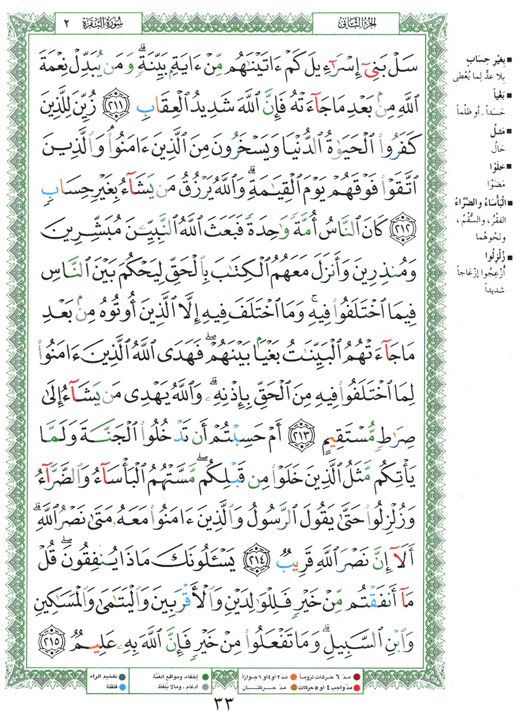 سُورَةُ البَقَرَة ٢
الجزء الثاني
سَلْ بَنِىٓ إِسْرَٰٓءِيلَ كَمْ ءَاتَيْنَٰهُم مِّنْ ءَايَةٍۭ بَيِّنَةٍۗ وَمَن يُبَدِّلْ نِعْمَةَ
ٱللَّهِ مِنۢ بَعْدِ مَا جَآءَتْهُ فَإِنَّ ٱللَّهَ شَدِيدُ ٱلْعِقَابِ ﴿٢١١﴾ زُيِّنَ لِلَّذِينَ
كَفَرُوا۟ ٱلْحَيَوٰةُ ٱلدُّنْيَا وَيَسْخَرُونَ مِنَ ٱلَّذِينَ ءَامَنُوا۟ۘ وَٱلَّذِينَ
ٱتَّقَوْا۟ فَوْقَهُمْ يَوْمَ ٱلْقِيَٰمَةِۗ وَٱللَّهُ يَرْزُقُ مَن يَشَآءُ بِغَيْرِ حِسَابٍ
﴿٢١٢﴾ كَانَ ٱلنَّاسُ أُمَّةً وَٰحِدَةً فَبَعَثَ ٱللَّهُ ٱلنَّبِيِّۦنَ مُبَشِّرِينَ
وَمُنذِرِينَ وَأَنزَلَ مَعَهُمُ ٱلْكِتَٰبَ بِٱلْحَقِّ لِيَحْكُمَ بَيْنَ ٱلنَّاسِ
فِيمَا ٱخْتَلَفُوا۟ فِيهِۚ وَمَا ٱخْتَلَفَ فِيهِ إِلَّا ٱلَّذِينَ أُوتُوهُ مِنۢ بَعْدِ
مَا جَآءَتْهُمُ ٱلْبَيِّنَٰتُ بَغْيًۢا بَيْنَهُمْۖ فَهَدَى ٱللَّهُ ٱلَّذِينَ ءَامَنُوا۟
لِمَا ٱخْتَلَفُوا۟ فِيهِ مِنَ ٱلْحَقِّ بِإِذْنِهِۦۗ وَٱللَّهُ يَهْدِى مَن يَشَآءُ إِلَىٰ
صِرَٰطٍ مُّسْتَقِيمٍ ﴿٢١٣﴾ أَمْ حَسِبْتُمْ أَن تَدْخُلُوا۟ ٱلْجَنَّةَ وَلَمَّا
يَأْتِكُم مَّثَلُ ٱلَّذِينَ خَلَوْا۟ مِن قَبْلِكُمۖ مَّسَّتْهُمُ ٱلْبَأْسَآءُ وَٱلضَّرَّآءُ
وَزُلْزِلُوا۟ حَتَّىٰ يَقُولَ ٱلرَّسُولُ وَٱلَّذِينَ ءَامَنُوا۟ مَعَهُۥ مَتَىٰ نَصْرُ ٱللَّهِۗ
أَلَآ إِنَّ نَصْرَ ٱللَّهِ قَرِيبٌ ﴿٢١٤﴾ يَسْـَٔلُونَكَ مَاذَا يُنفِقُونَۖ قُلْ
مَآ أَنفَقْتُم مِّنْ خَيْرٍ فَلِلْوَٰلِدَيْنِ وَٱلْأَقْرَبِينَ وَٱلْيَتَٰمَىٰ وَٱلْمَسَٰكِينِ
وَٱبْنِ ٱلسَّبِيلِۗ وَمَا تَفْعَلُوا۟ مِنْ خَيْرٍ فَإِنَّ ٱللَّهَ بِهِۦ عَلِيمٌ ﴿٢١٥﴾
■ بِغَيْرِ حِسَابٍ
بِلا عدٍّ لِما يُعْطي
■ بَغْياً
حَسَداً . أو ظلماً
■ مَثَلُ
حَالُ
■ خَلَوْا
مَضَوْا
■ الْبَأْسَاءُ والضَّرَّاءُ
الفَقْرُ ، والسُّقْمُ ،
ونَحْوهُما
■ زُلْزِلُوا
أُزْعِجُوا إزْعَاجاً
شديداً
مد ٦ حركات لزوماً
مد ٢ أو ٤ أو ٦ جوازاً
إخفاء، ومواقع الغنّة
تفخيم الراء
مد واجب ٤ أو ٥ حركات
مد حركتان
ادغام ، وما لا يلفظ
قلقلة
٣٣